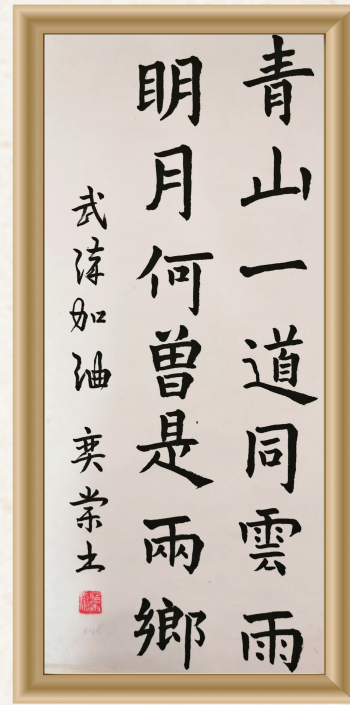 青山一道同雲雨
明月何曾是兩鄉
武漢加油 奕